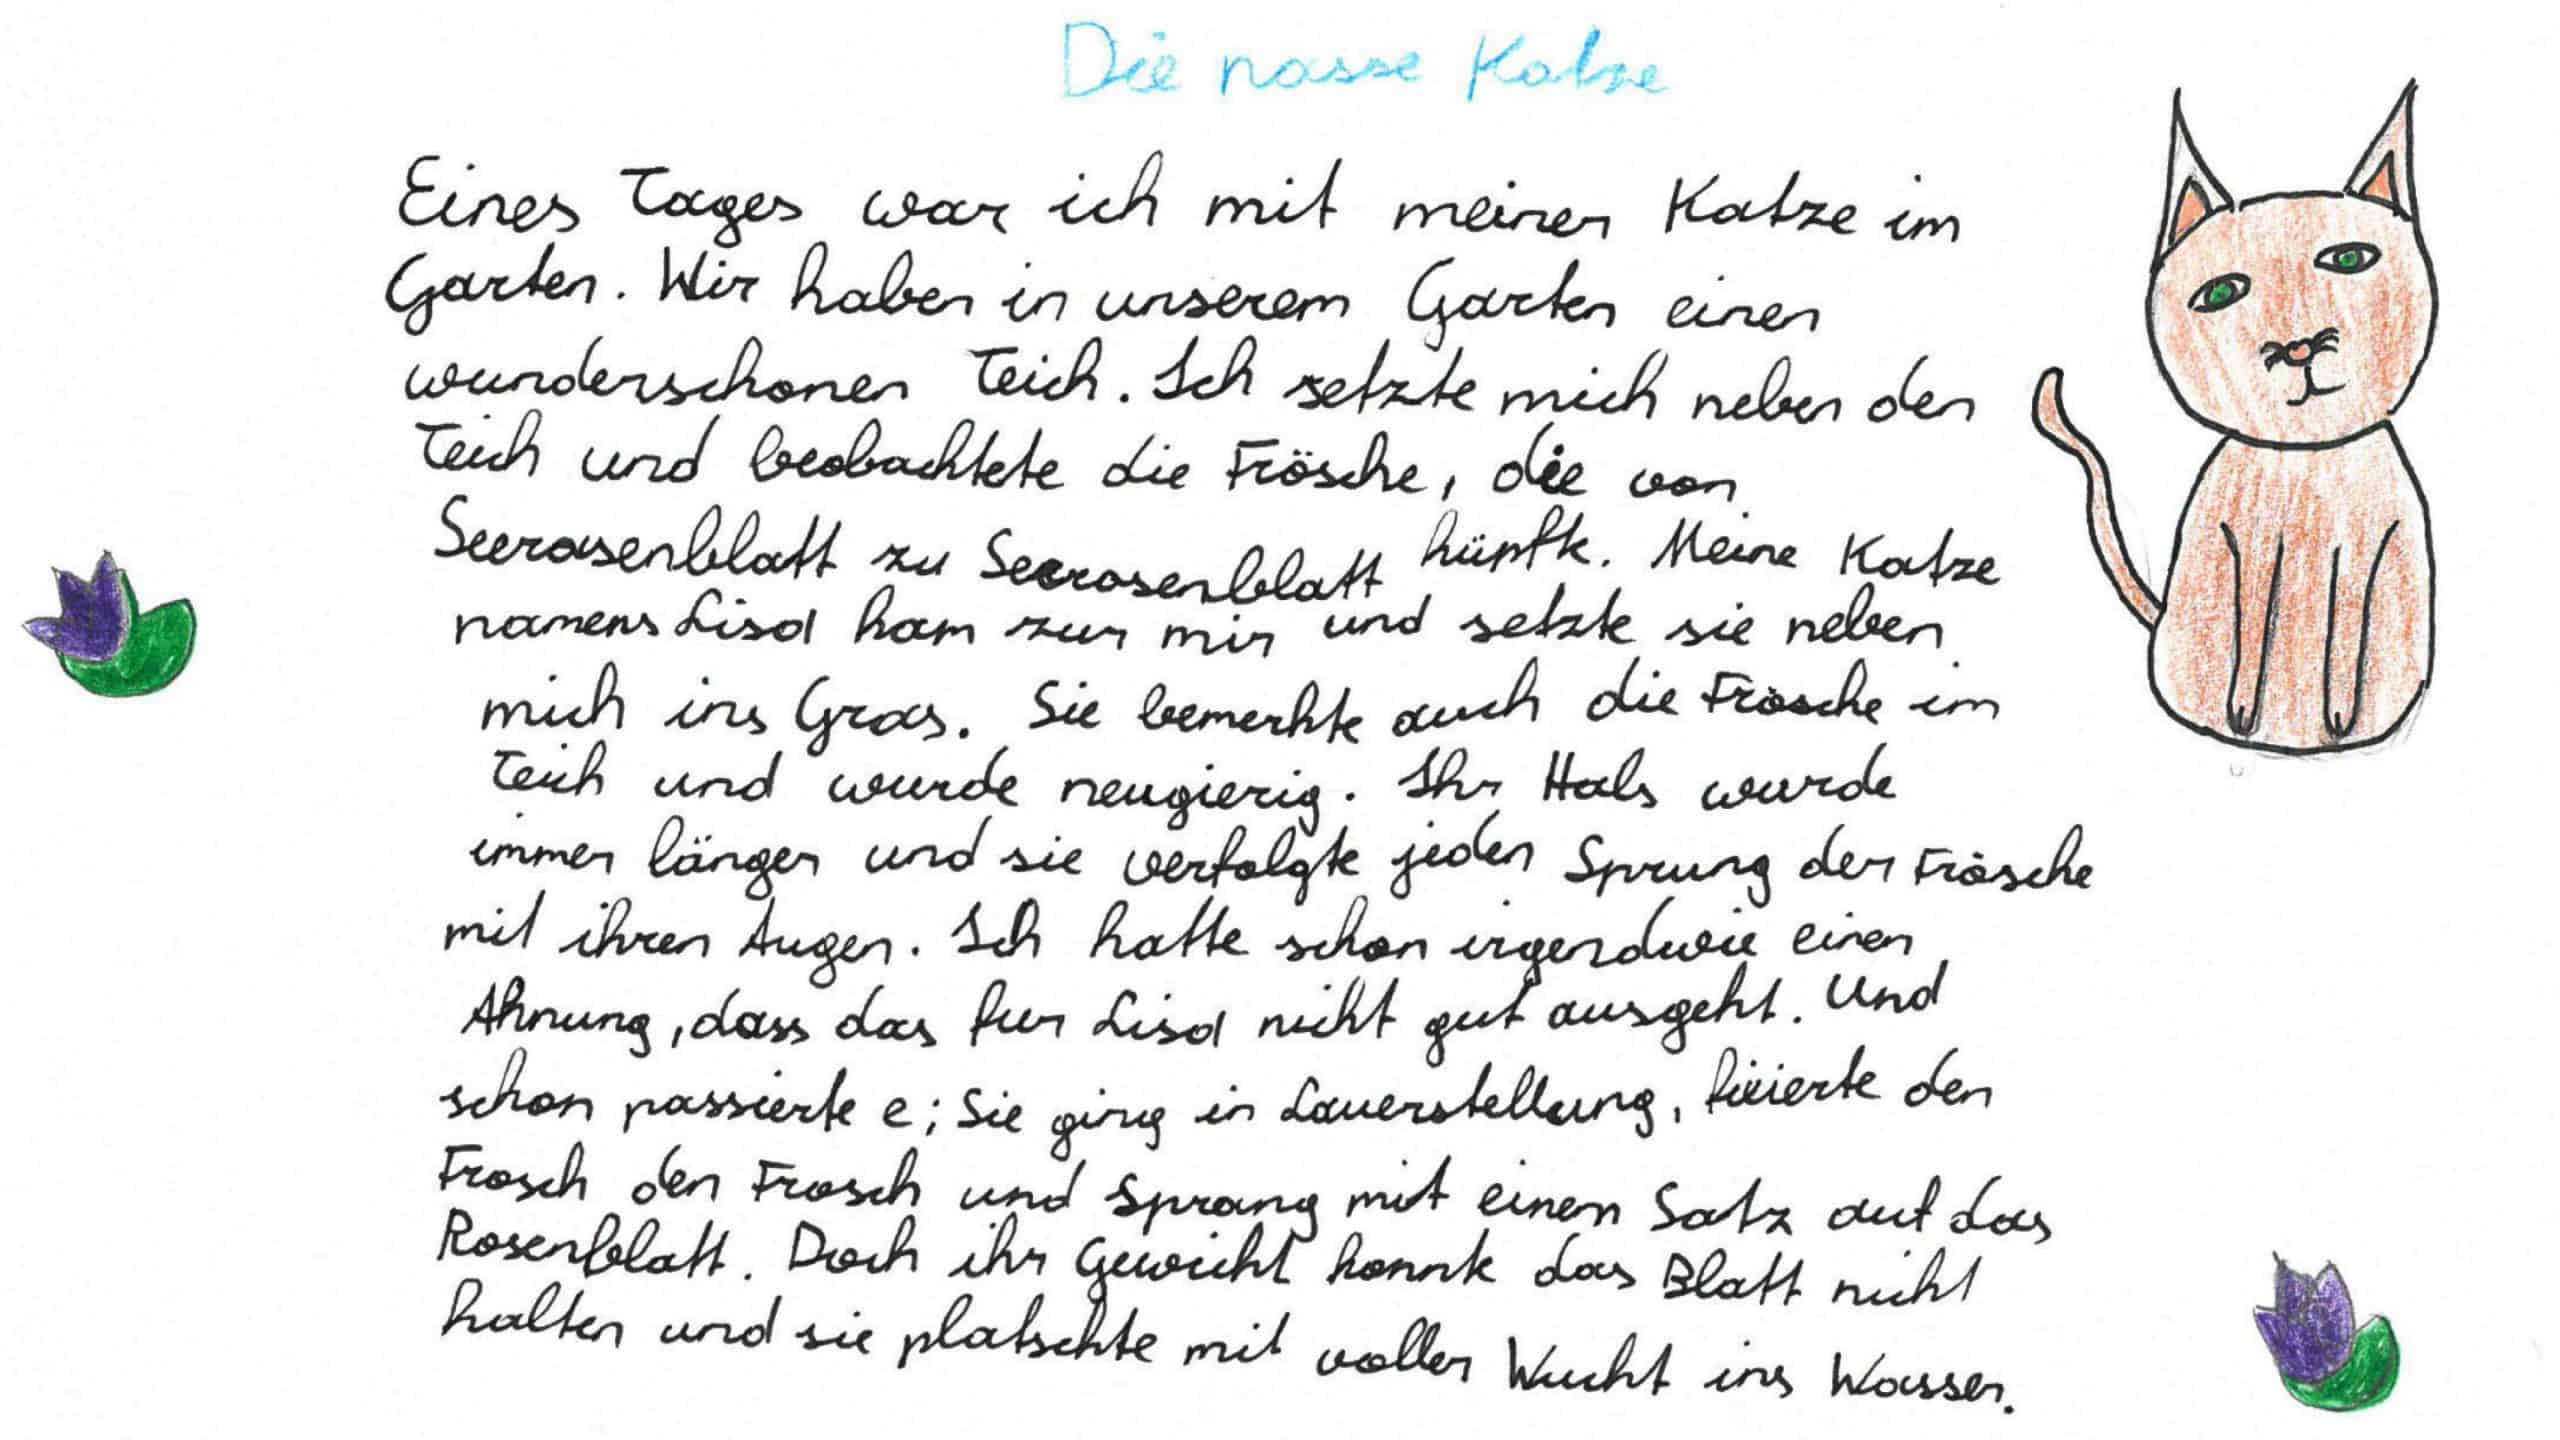 Die nasse Katze
Eines Tages war ich mit meiner Katze im
Garten. Wir haben in unserem Garten einen
wunderschonen Teich. Ich setzte mich neben den
Teich und beobachtete die Frösche, die von
Seerosenblatt zu Seerosenblatt hüpfte. Meine Katze
namens Lisa kam zur mir und setzte sie neben
mich ins Gras. Sie bemerkte auch die Frösche im
Teich und wurde neugierig. Ihr Hals wurde
immer länger und sie verfolgte jeden Sprung der Frösche
mit ihren Augen. Ich hatte schon irgendwie einen
Ahnung, dass das fur Lisa nicht gut ausgeht. Und
schon passierte e; Sie ging in Lauerstellung, fixierte den
Frosch den Frosch und sprang mit einem Satz auf das
Rosenblatt. Doch ihr Gewicht konnte das Blatt nicht
halten und sie platschte mit voller Wucht ins Wasser.